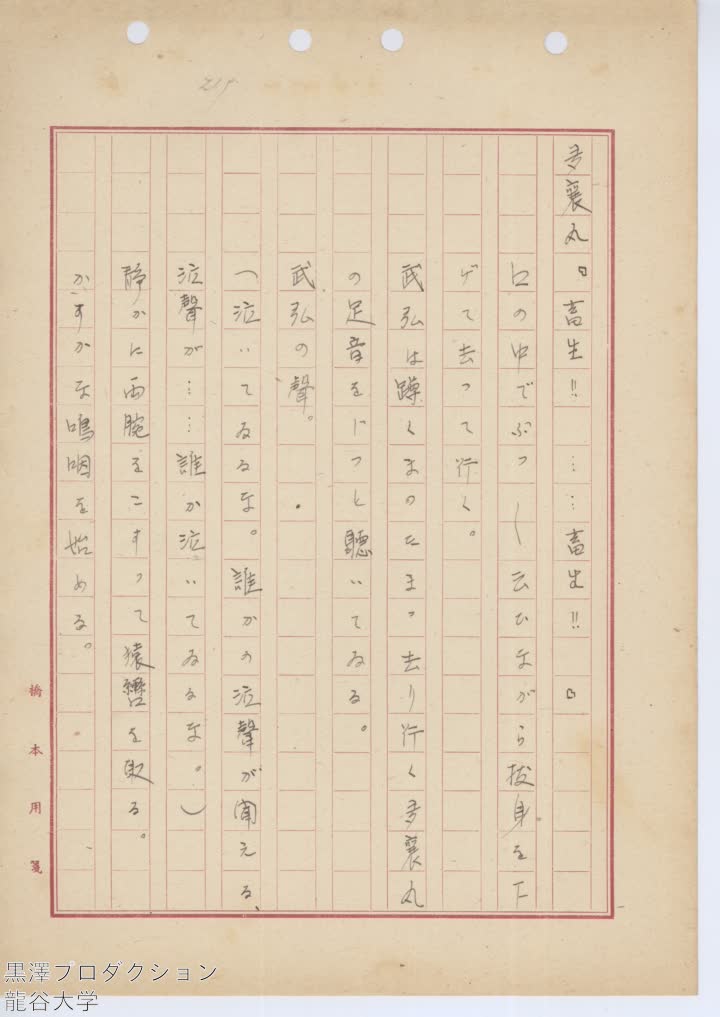 多襄丸『畜生!! ……畜生!!』
口の中でぶつ〱云ひながら抜身を下
げて去って行く。
武弘は蹲くまつたまゝ去り行く多襄丸
の足音をじつと聽いてゐる。
武弘の聲。
（泣いてゐるな。誰かの泣聲が聞える、
泣聲が……誰か泣いてゐるな。）
静かに両腕をこすつて猿轡を取る。
かすかな嗚咽を始める。
橋本用箋
黒澤プロダクション
龍谷大学